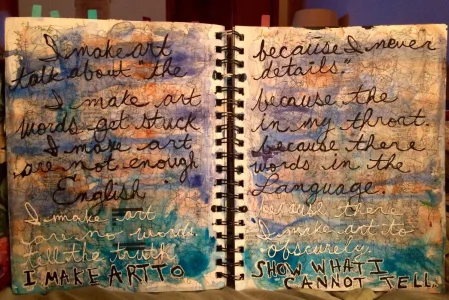 I make art because I never
talk about "the details."
I make art because the
words get stuck in my throat.
I make art because there
are not enough words in the
English Language.
I make art because there
are no words. I make art to
tell the truth obscurely.
I MAKE ART TO SHOW WHAT I
CANNOT TELL.